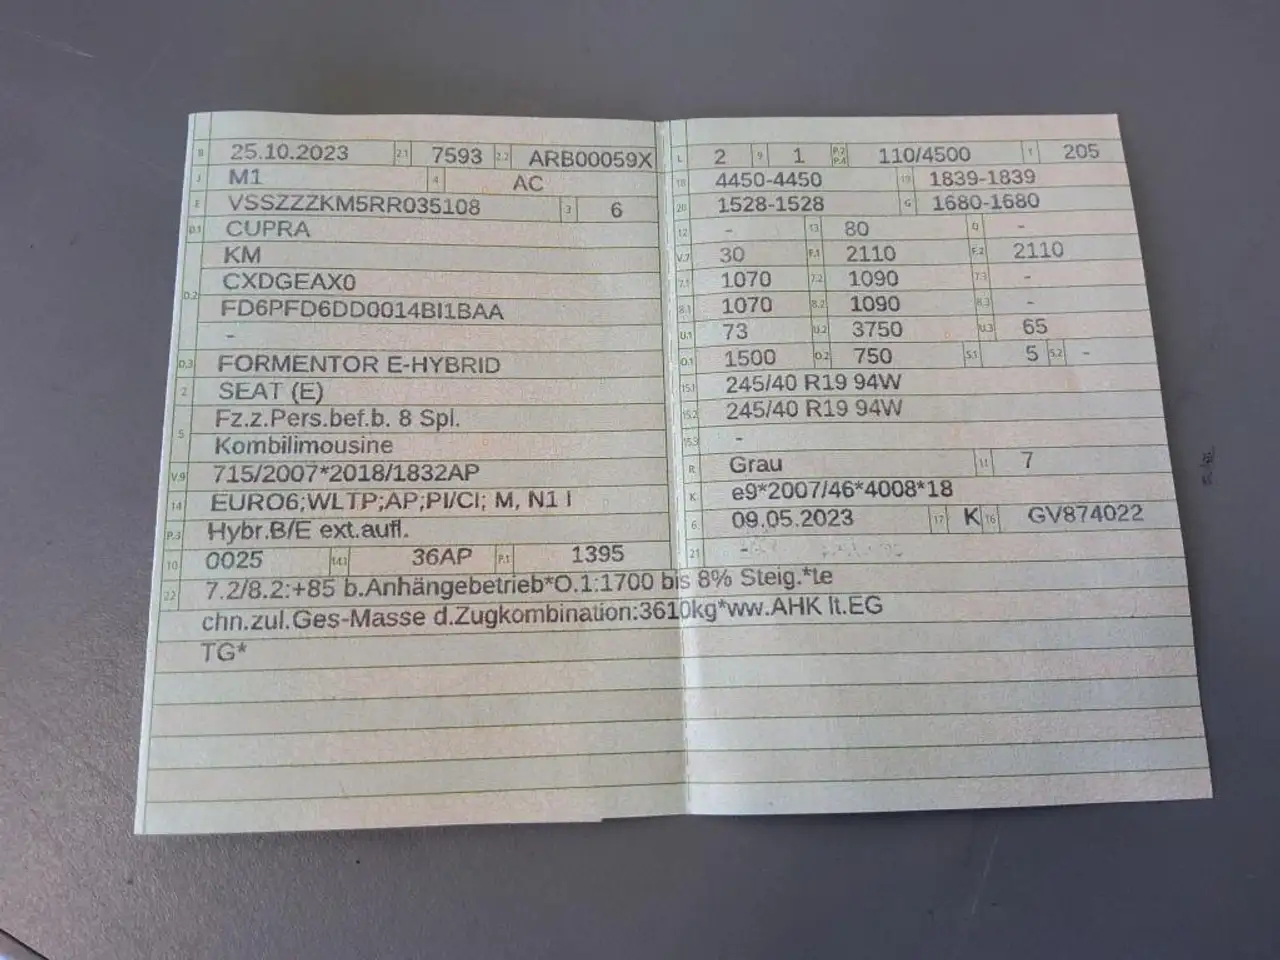 B 25.10.2023 2.1 7593 2.2 ARB00059X
J M1 4 AC
E VSSZZZKM5RR035108 3 6
D.1 CUPRA
KM
D.2 CXDGEAX0
FD6PFD6DD0014BI1BAA
-
D.3 FORMENTOR E-HYBRID
2 SEAT (E)
5 Fz.z.Pers.bef.b. 8 Spl.
Kombilimousine
V.9 715/2007*2018/1832AP
14 EURO6;WLTP;AP;PI/CI; M, N1 I
P.3 Hybr.B/E ext.aufl.
10 0025 14.1 36AP P.1 1395
L 2 9 1 P.2 P.4 110/4500 T 205
18 4450-4450 19 1839-1839
20 1528-1528 G 1680-1680
12 - 13 80 Q -
V.7 30 F.1 2110 F.2 2110
7.1 1070 7.2 1090 7.3 -
8.1 1070 8.2 1090 8.3 -
U.1 73 U.2 3750 U.3 65
O.1 1500 O.2 750 S.1 5 S.2 -
15.1 245/40 R19 94W
15.2 245/40 R19 94W
15.3 -
R Grau 11 7
K e9*2007/46*4008*18
6 09.05.2023 17 K 16 GV874022
21 -
22 7.2/8.2:+85 b.Anhängebetrieb*O.1:1700 bis 8% Steig.*te
chn.zul.Ges-Masse d.Zugkombination:3610kg*ww.AHK lt.EG
TG*